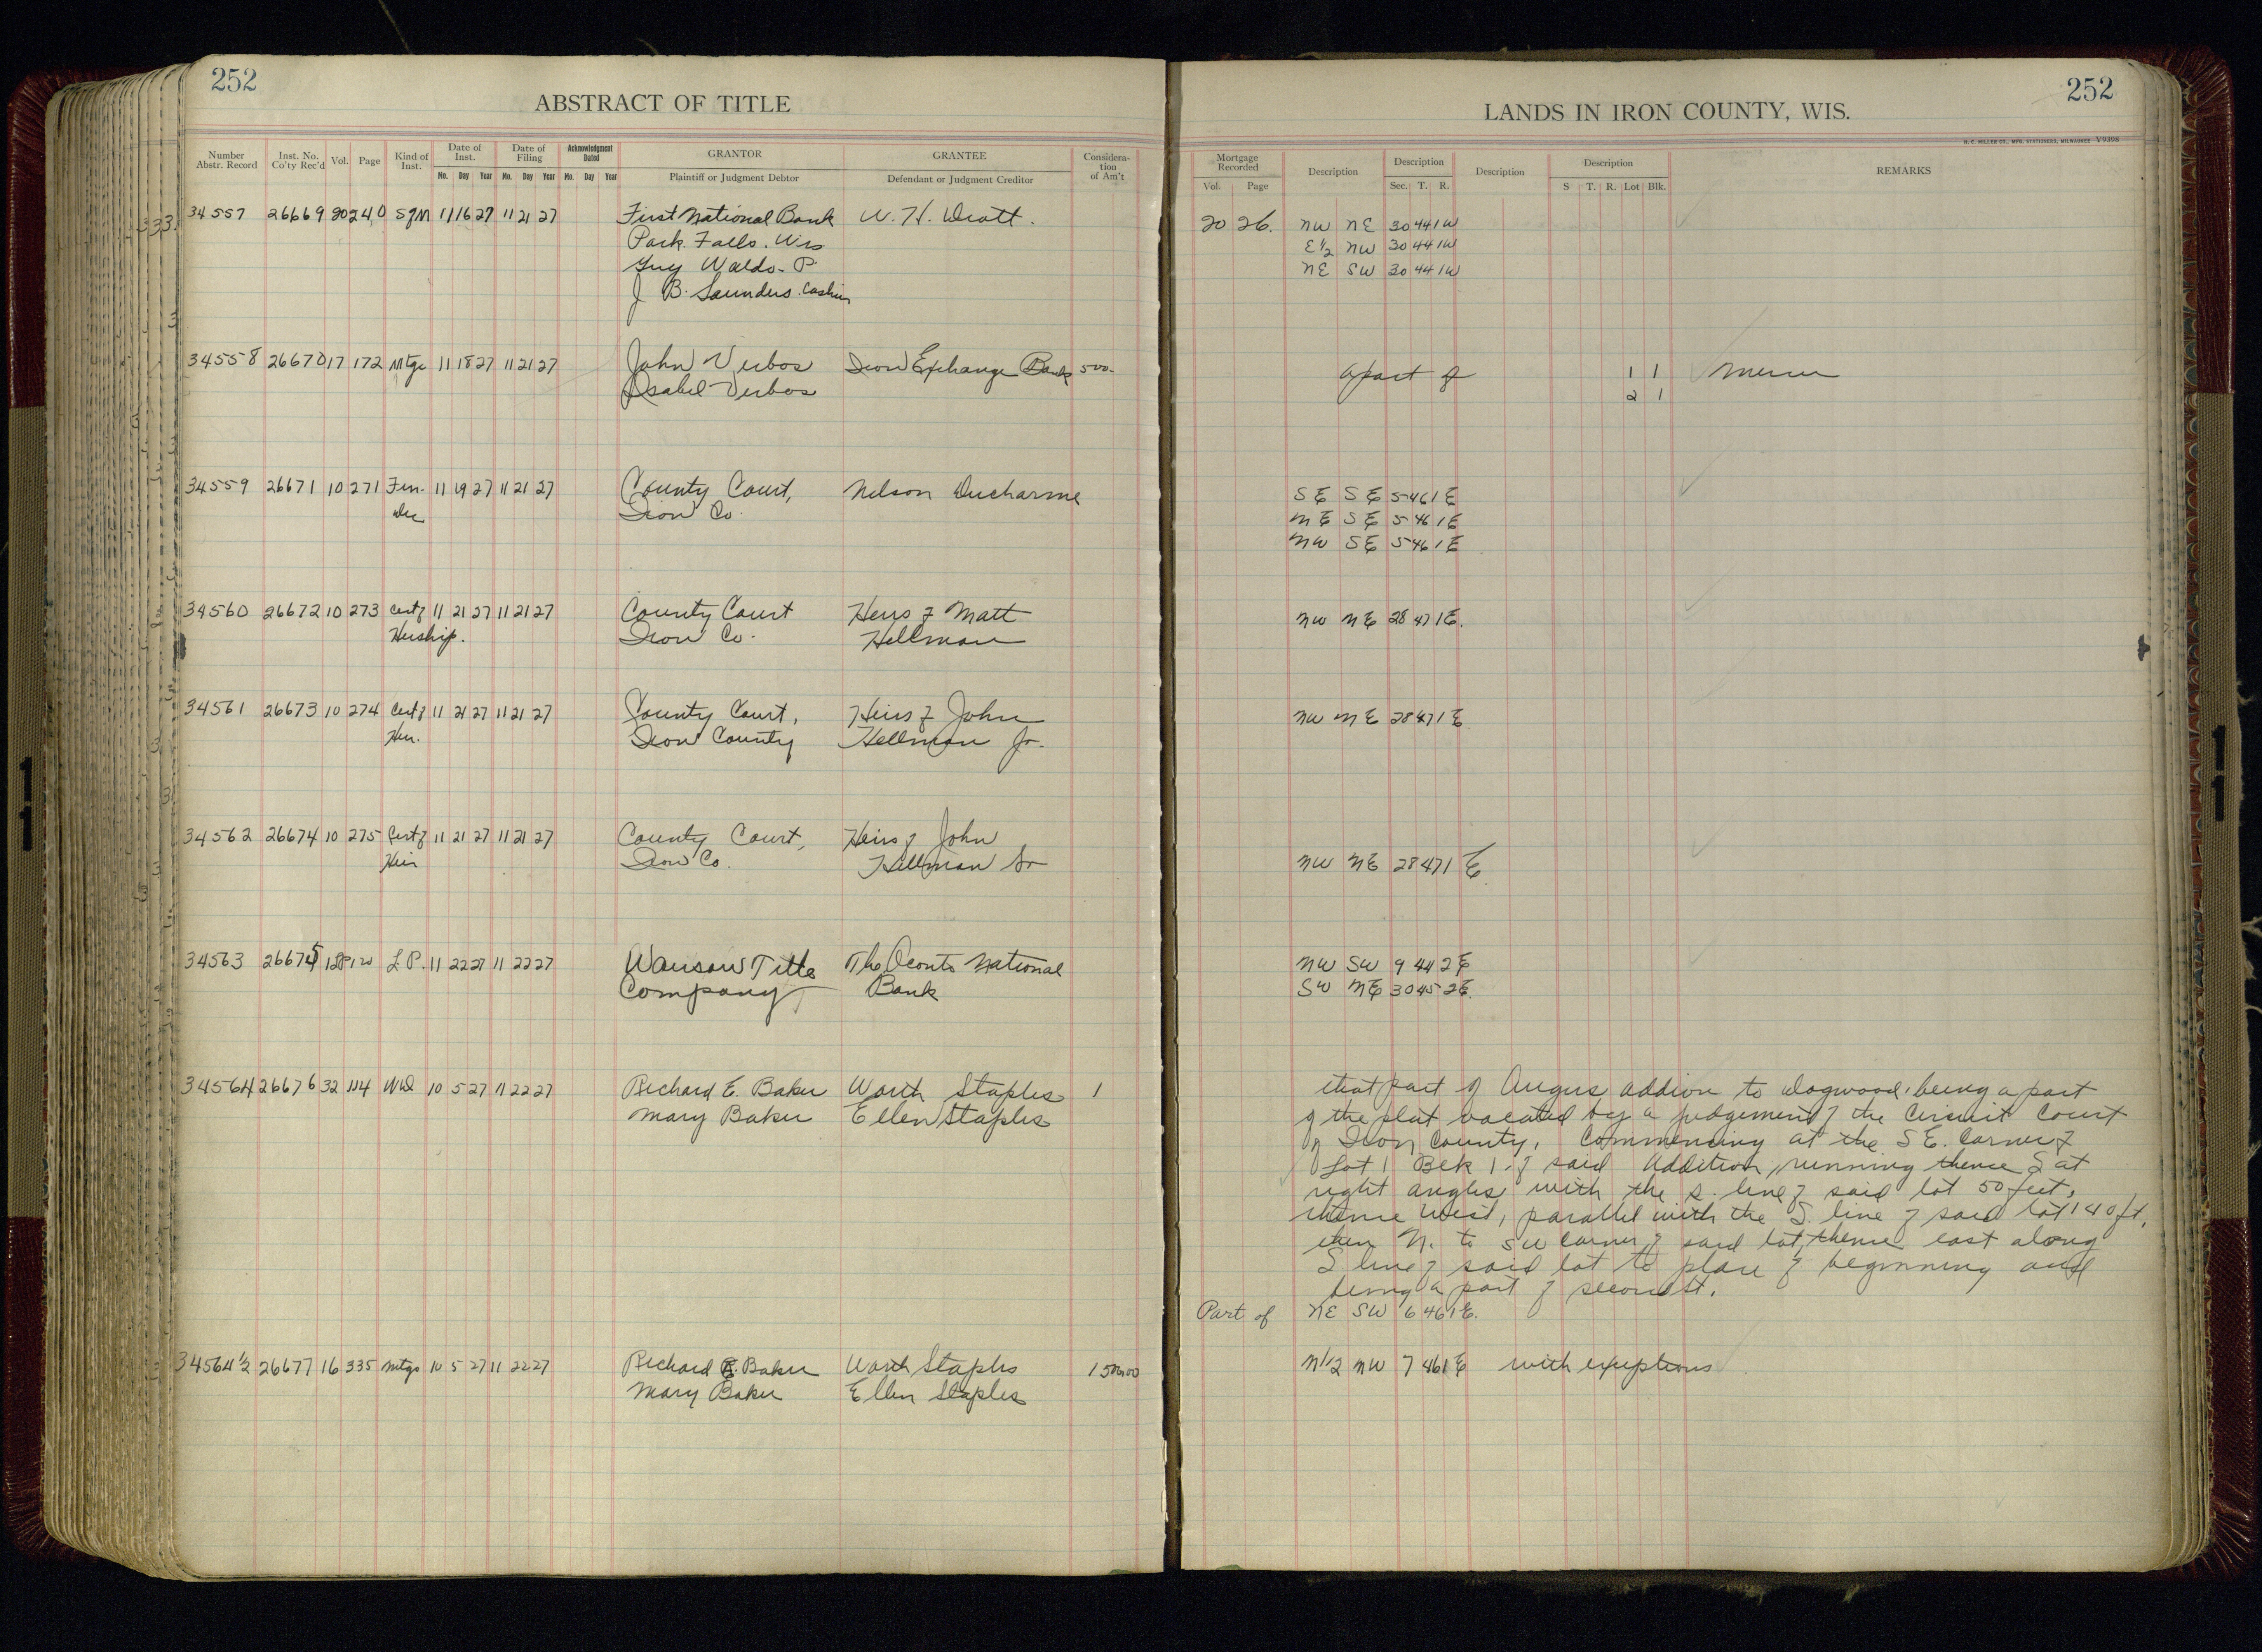 252
ABSTRACT OF TITLE
Number Abstr. Record
Inst. No. Co'ty Rec'd
Vol.
Page
Kind of Inst.
Date of Inst.
Mo. Day Year
Date of Filing
Mo. Day Year
Acknowledgment Dated
Mo. Day Year
GRANTOR
Plaintiff or Judgment Debtor
GRANTEE
Defendant or Judgment Creditor
Considera-
tion
of Am't
34557 26669 20 240 11 16 27 11 21 27 First National Bank W. H.
Park Falls. Wis
Guy Waldo. P.
J B. Saunders. Cashier
34558 26670 17 172 Mtge 11 18 27 11 21 27 John Verbos Iron Exchange Bank 500.
Isabel Verbos
34559 26671 10 271 Fin. 11 19 27 11 21 27 County Court, Nelson Ducharme
Dec Iron Co.
34560 26672 10 273 Cert of 11 21 27 11 21 27 County Court Heirs of Matt
Heirship. Iron Co. Hellman
34561 26673 10 274 Cert of 11 21 27 11 21 27 County Court, Heirs of John
Heir. Iron County Hellman Jr.
34562 26674 10 275 Cert of 11 21 27 11 21 27 County Court, Heirs of John
Heir Iron Co. Hellman Sr
34563 26675 L P. 11 22 27 11 22 27 Wausau Title The Oconto National
Company Bank
34564 26676 32 114 WD 10 5 27 11 22 27 Richard E. Baker Worth Staples 1
Mary Baker Ellen Staples
34564 1/2 26677 16 335 Mtge 10 5 27 11 22 27 Richard E. Baker Worth Staples
Mary Baker Ellen Staples
252
LANDS IN IRON COUNTY, WIS.
H. C. MILLER CO., MFG. STATIONERS, MILWAUKEE V9308
Mortgage Recorded
Vol. Page
Description
Description
Sec. T. R.
Description
Description
S T. R. Lot Blk.
REMARKS
20 26. NW NE 30 44 1W
E 1/2 NW 30 44 1W
NE SW 30 44 1W
a part of 1 1 Mercer
2 1
SE SE 5 46 1E
NE SE 5 46 1E
NW SE 5 46 1E
NW NE 28 47 1E.
NW NE 28 47 1E
NW NE 28 47 1 E.
NW SW 9 44 2E
SW NE 30 45 2E.
that part of Angus addion to Dogwood, being a part
of the plat vacated by a judgement of the Circuit Court
of Iron County, Commencing at the S E. Corner of
Lot 1 Blk 1. of said Addition, running thence S at
right angles with the S. line of said lot 50 feet,
thence West, parallel with the S. line of said lot 140 ft,
then N. to SW Corner of said lot, thence east along
S line of said lot to place of beginning and
being a part of
Part of NE SW 6 46 1E.
N 1/2 NW 7 46 1E with exceptions